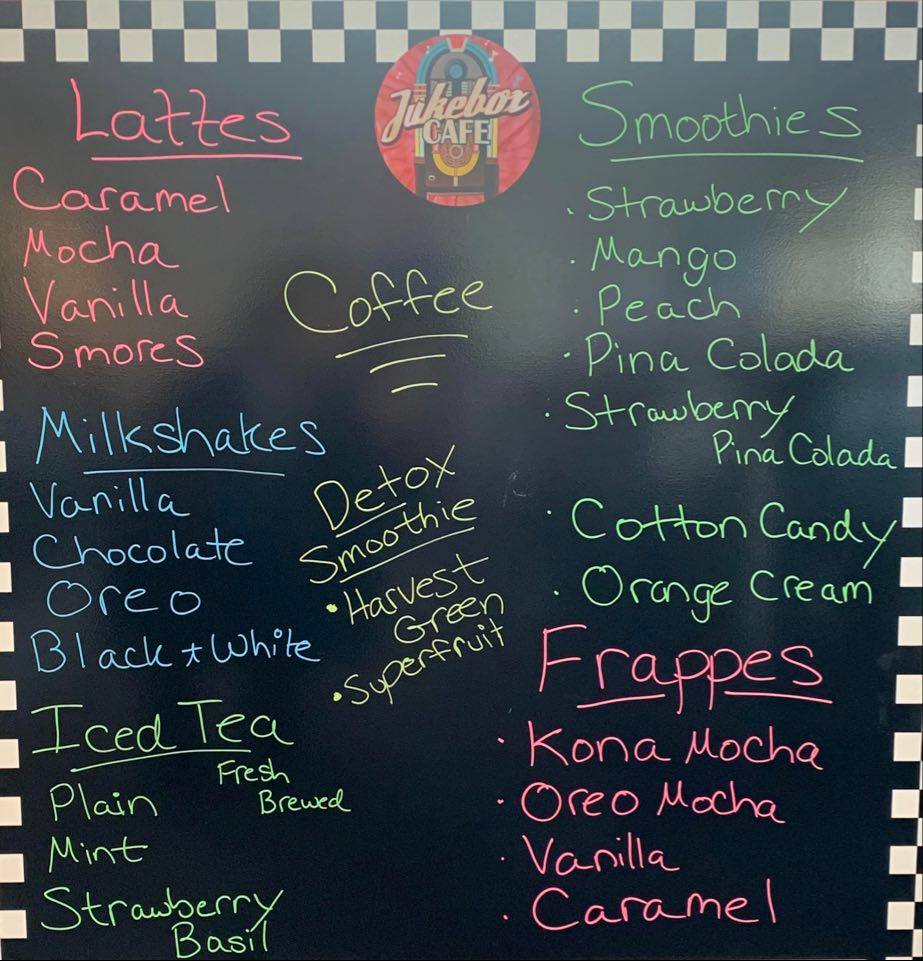 Jukebox
CAFE
Lattes
Caramel
Mocha
Vanilla
Smores
Coffee
Milkshakes
Vanilla
Chocolate
Oreo
Black + White
Detox
Smoothie
• Harvest
Green
• Superfruit
Iced Tea
Fresh
Brewed
Plain
Mint
Strawberry
Basil
Smoothies
· Strawberry
· Mango
· Peach
· Pina Colada
· Strawberry
Pina Colada
· Cotton Candy
· Orange Cream
Frappes
· Kona Mocha
· Oreo Mocha
· Vanilla
· Caramel